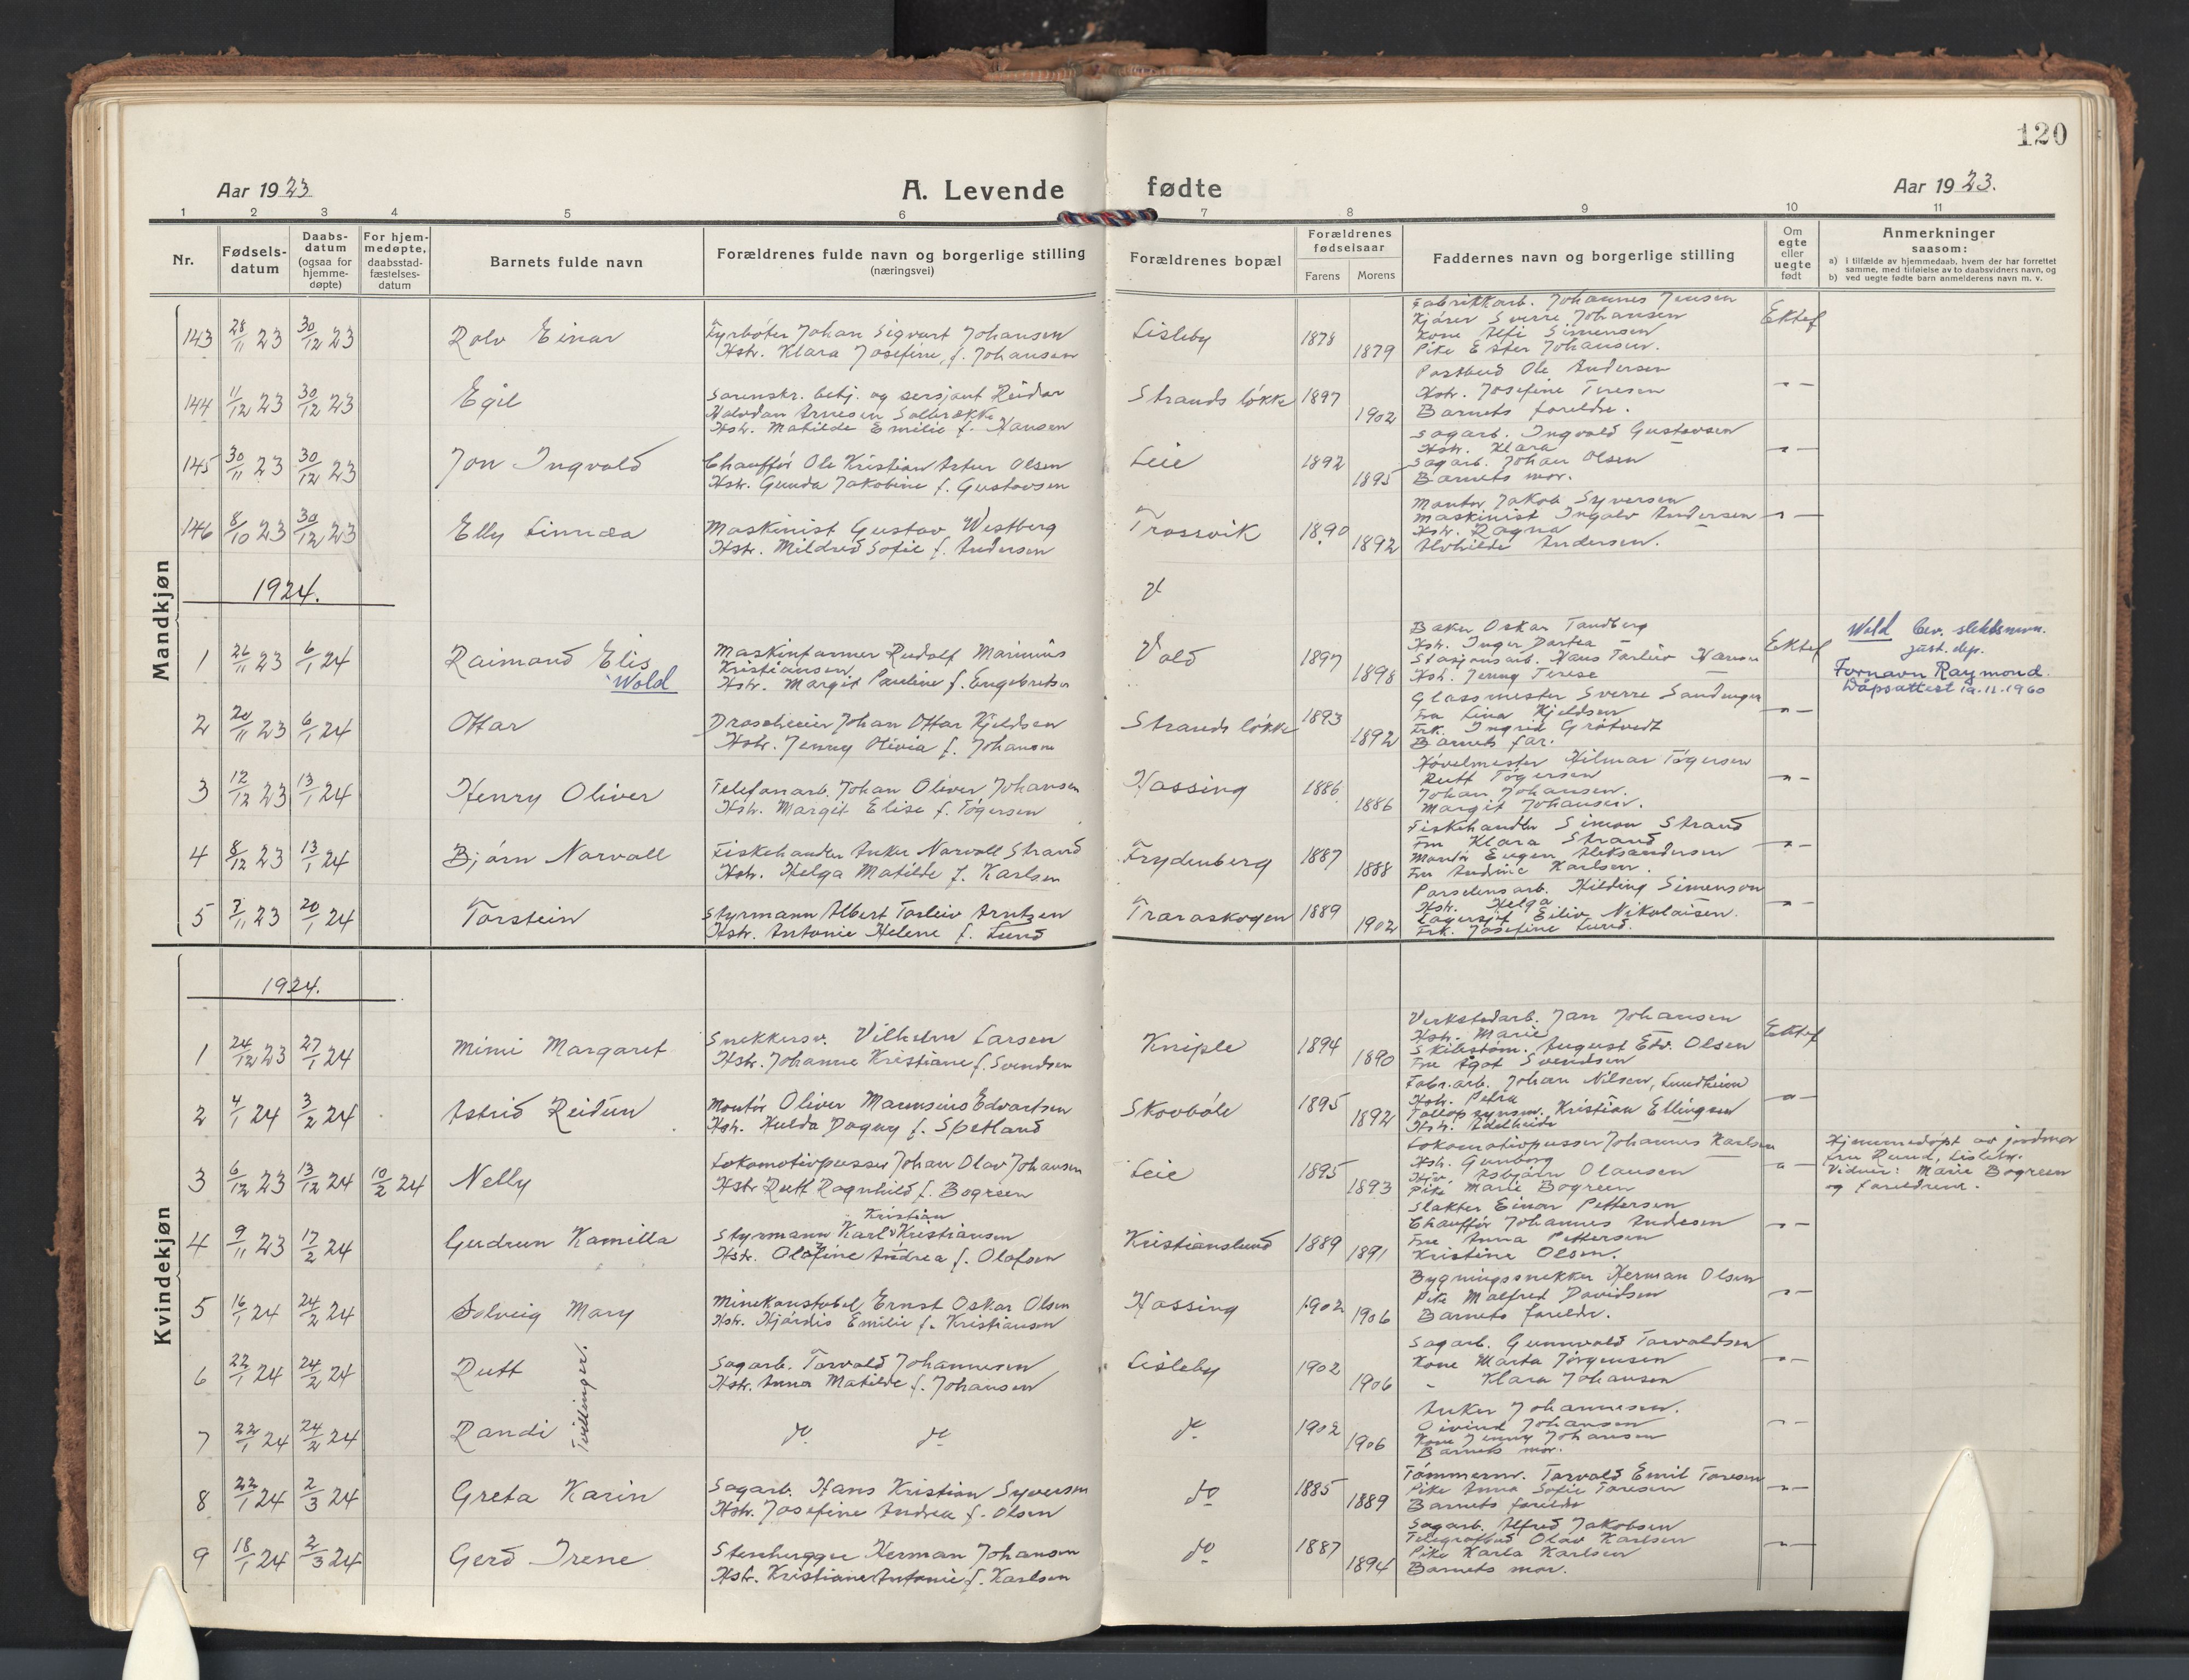 120
Aar 1923
A. Levende fødte
Aar 1923.
1 2 3 4 5 6 7 8 9 10 11
Nr.
Fødsels-
datum
Daabs-
datum
(ogsaa for
hjemme-
døpte)
For hjem-
medøpte,
daabsstad-
fæstelses-
datum
Barnets fulde navn
Forældrenes fulde navn og borgerlige stilling
(næringsvei)
Forældrenes bopæl
Forældrenes
fødselsaar
Farens Morens
Faddernes navn og borgerlige stilling
Om
egte
eller
uegte
født
Anmerkninger
saasom:
a) i tilfælde av hjemmedaab, hvem der har forrettet
samme, med tilføielse av to daabsvidners navn, og
b) ved uegte fødte barn anmelderens navn m. v.
Mandkjøn
143 28/11 23 30/12 23 Rolv Einar
Fyrbøter Johan Sigvart Johansen
Hstr. Klara Josefine, f. Johansen
Lisleby 1878 1879
Fabrikkarb. Johannes Jensen
Kjører Sverre Johansen
Kone Alfi Simensen
Pike Ester Johansen.
Ektef
144 11/12 23 30/12 23 Egil
Sersjant Reidar
Halvdan Arnesen Solbrække
Hstr. Matilde Emilie f. Hansen
Strands løkke 1897 1902
Postbud Ole Andersen
Hstr. Josefine Teresen
Barnets foreldre.
-"-
145 30/11 23 30/12 23 Jon Ingvald
Chauffør Ole Kristian Artur Olsen
Hstr. Gunda Jakobine f. Gustavsen
Leie 1892 1895
Sagarb. Ingvald Gustavsen
Hstr. Klara —
Sagarb. Johan Olsen
Barnets mor.
-"-
146 8/10 23 30/12 23 Elly Linnea
Maskinist Gustav Westberg
Hstr. Mildred Sofie f. Andersen
Trosvik 1890 1892
Montør Jakob Syversen
Maskinist Ingolv Andersen
Hstr. Ragna —
Alvhilde Andersen.
-"-
1924.
1 26/11 23 6/1 24 Raimond Elis
Wold
Maskinformer Rudolf Marinius
Kristiansen
Hstr. Margit Pauline f. Engebretsen
Vold 1897 1898
Baker Oskar Tandberg
Hstr. Inger Dortea —
Stasjonsarb. Hans Torleiv Hansen
Hstr. Jenny Terese —
Ektef
Wold bev. slektsnavn.
just. dep.
Fornavn Raymond.
Dåpsattest 19.11.1960
2 20/11 23 6/1 24 Ottar
Droscheeier Johan Ottar Kjeldsen
Hstr. Jenny Olivia f. Johansen
Strands løkke 1893 1892
Glassmester Sverre Sandunger
Fru Lina Kjeldsen
Frk. Ingrid Grøtvedt
Barnets far.
-"-
3 12/12 23 13/1 24 Henry Oliver
Telefonarb. Johan Oliver Johansen
Hstr. Margit Elise f. Tøgersen
Hassing 1886 1886
Høvelmester Hilmar Tøgersen
Rutt Tøgersen
Johan Johansen.
Margit Johansen.
-"-
4 8/12 23 13/1 24 Bjørn Norvall
Fiskehandler Anker Norvall Strand
Hstr. Helga Matilde f. Karlsen
Frydenberg 1887 1888
Fiskehandler Simon Strand
Fru Klara Strand
Montør Eugen Aleksandersen
Fru Andine Karlsen.
-"-
5 7/11 23 20/1 24 Torstein
Styrmann Albert Torleiv Arntzen
Hstr. Antonie Helene f. Lund
Traraskogen 1889 1902
Porselensarb. Hilding Simenson
Hstr. Helga —
Lagersjef Eiliv Nikolaisen.
Frk. Josefine Lund.
-"-
Kvindekjøn
1924.
1 24/12 23 27/1 24 Mimi Margaret
Snekkersv. Vilhelm Larsen
Hstr. Johanne Kristiane f. Svendsen
Kniple 1894 1890
Verkstedarb. Jan Johansen
Hstr. Marie —
Skibstøm. August Edv. Olsen
Fru Agot Svendsen
Ektef
2 4/1 24 3/2 24 Astrid Reidun
Montør Oliver Marensius Edvartsen
Hstr. Hulda Dagny f. Spetland
Skovbøle 1895 1892
Fabr.arb. Johan Nilsen, Lundheim
Hstr. Petra —
Kristian Ellingsen
Hstr. Adelheide —
-"-
3 6/12 23 13/12 24 10/2 24 Nelly
Lokomotivpusser Johan Olav Johansen
Hstr Rutt Ragnhild f. Bogreen
Leie 1895 1893
Lokomotivpusser Johannes Karlsen
Hstr. Gunborg —
Asbjørn Olausen
Pike Marie Bogreen
-"-
Hjemmedøpt av jordmor
fru Rund, Lisleby.
Vidner: Marie Bogreen
og foreldrene.
4 9/11 23 17/2 24 Gudrun Kamilla
Kristian
Styrmann Karl Kristiansen
Hstr. Olafine Andrea f. Olafsen
Kristianslund 1889 1891
Slakter Einar Pettersen
Chauffør Johannes Andresen
Fru Anna Pettersen
Kristine Olsen.
-"-
5 16/1 24 24/2 24 Solveig Mary
Minekonstabel Ernst Oskar Olsen
Hstr. Hjørdis Emilie f. Kristiansen
Hassing 1902 1906
Bygningssnekker Herman Olsen
Pike Malfred Davidsen
Barnets foreldre.
-"-
6 22/1 24 24/2 24 Rutt
Tvillinger.
Sagarb. Torvald Johannesen
Hstr. Anna Matilde f. Johansen
Lisleby 1902 1906
Sagarb. Gunnvald Torvaldsen
Kone Marta Jørgensen
" Klara Johansen
-"-
7 22/1 24 24/2 24 Randi
do do
do 1902 1906
Anker Johannesen.
Oivind Johansen
Kone Jenny Johansen
Barnets mor.
-"-
8 22/1 24 2/3 24 Greta Karin
Sagarb. Hans Kristian Syversen
Hstr. Josefine Andrea f. Olsen
do 1885 1889
Tømmerm. Torvald Emil Toresen
Pike Anna Sofie Toresen
Barnets foreldre
-"-
9 18/1 24 2/3 24 Gerd Irene
Stenhugger Herman Johansen
Hstr. Kristiane Antonie f. Karlsen
do 1887 1894
Sagarb. Alfred Jakobsen
Telegrafbud Olav Karlsen
Pike Karla Karlsen
Barnets mor.
-"-